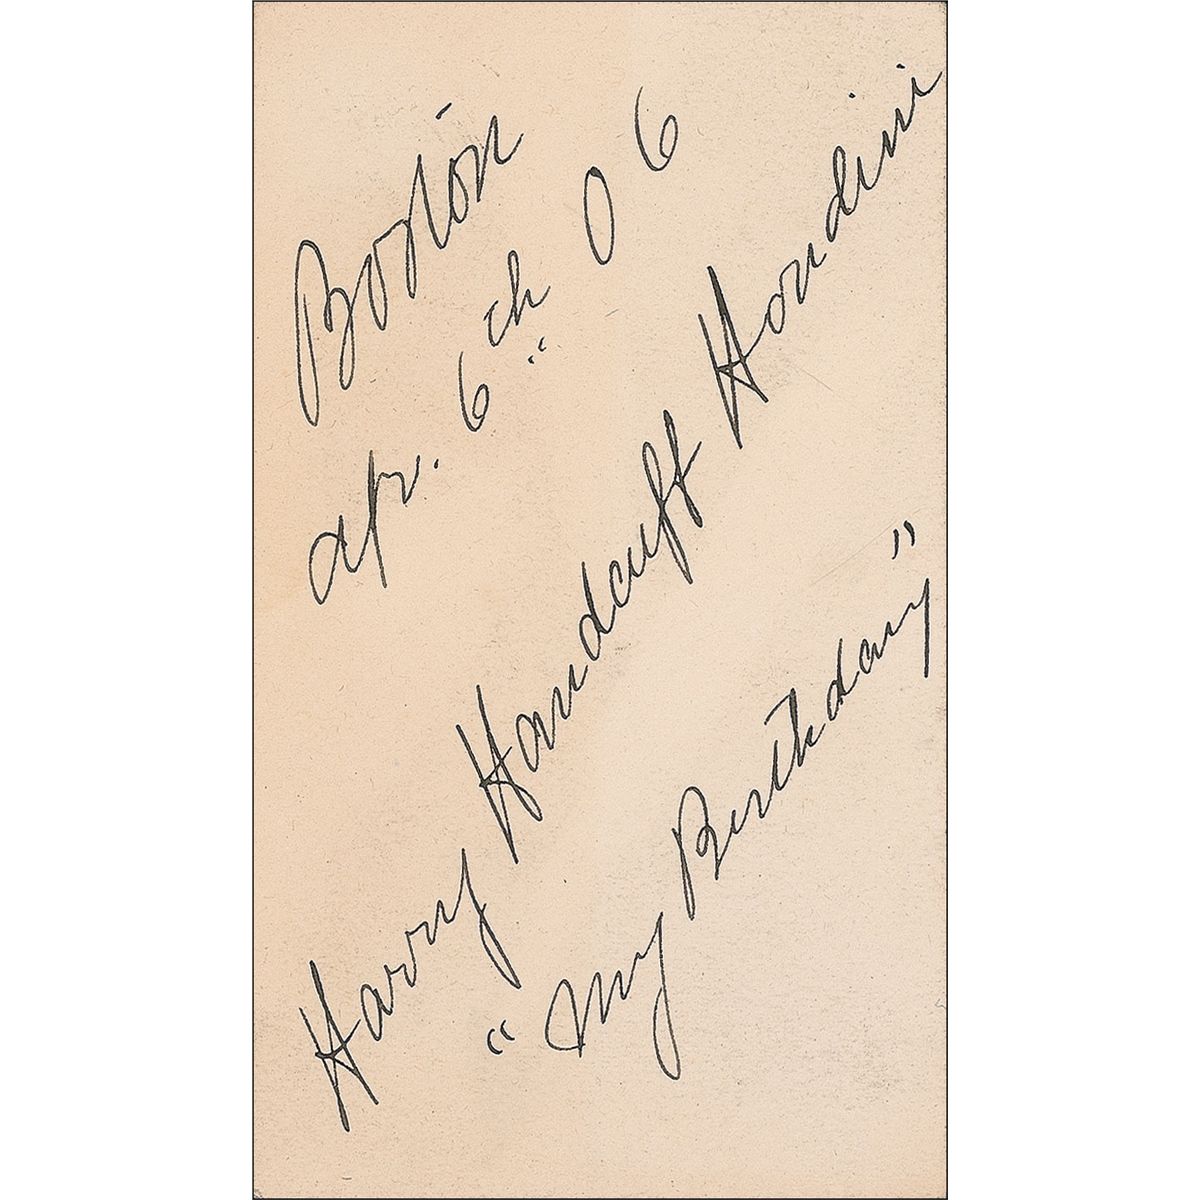 Boston
Apr. 6th 06
Harry Handcuff Houdini
"My Birthday"